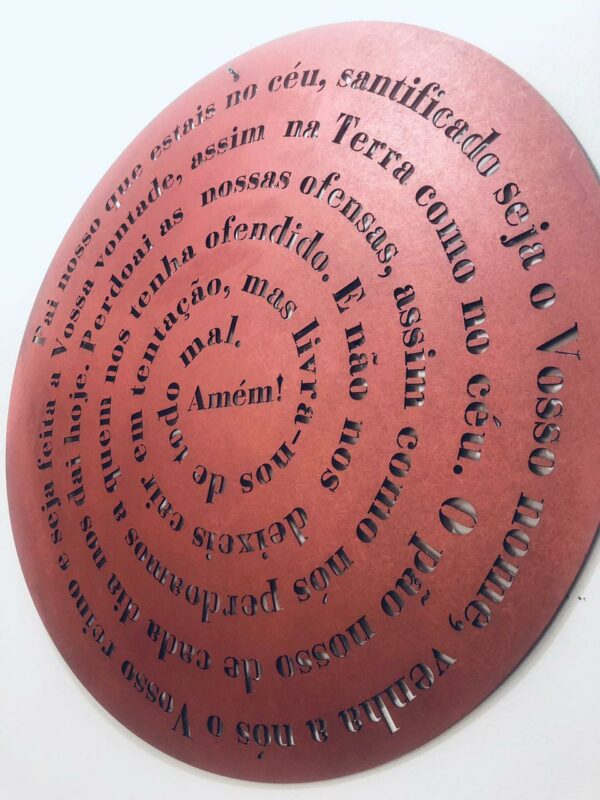 Pai nosso que estais no céu, santificado seja o Vosso nome, venha a nós o Vosso reino e seja feita
a Vossa vontade, assim na Terra como no céu. O pão nosso de cada dia nos dai hoje.
Perdoai as nossas ofensas, assim como nós perdoamos a quem
nos tenha ofendido. E não nos deixeis cair em
tentação, mas livra-nos de todo mal.
Amém!